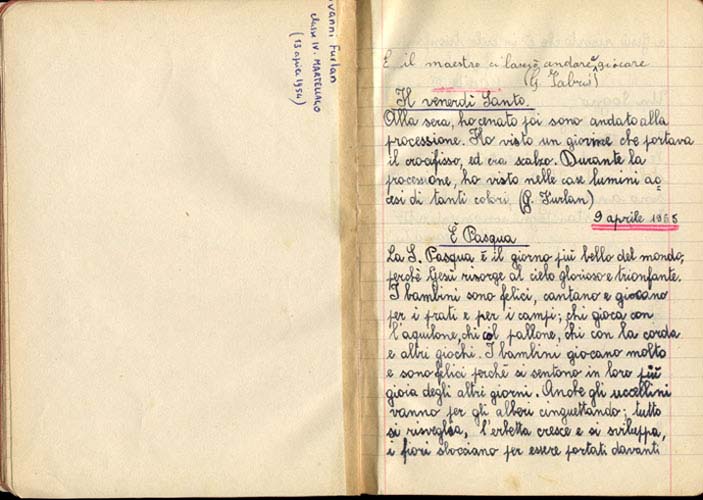 Giovanni Furlan
classe IV. MARTELLAGO
(13 aprile 1954)
E il maestro ci lasciò andare a giocare
(G. Fabris)
Il venerdì Santo.
Alla sera, ho cenato poi sono andato alla
processione. Ho visto un giovine che portava
il crocifisso, ed era scalzo. Durante la
processione, ho visto nelle case lumini ac=
cesi di tanti colori. (G. Furlan)
9 aprile 1955
È Pasqua
La S. Pasqua è il giorno più bello del mondo;
perchè Gesù risorge al cielo glorioso e trionfante.
I bambini sono felici, cantano e giocano
per i prati e per i campi; chi gioca con
l'aquilone, chi col pallone, chi con la corda
e altri giochi. I bambini giocano molto
e sono felici perchè si sentono in loro più
gioia degli altri giorni. Anche gli uccellini
vanno per gli alberi cinguettando; tutto
si risveglia, l'erbetta cresce e si sviluppa,
i fiori sbocciano per essere portati davanti